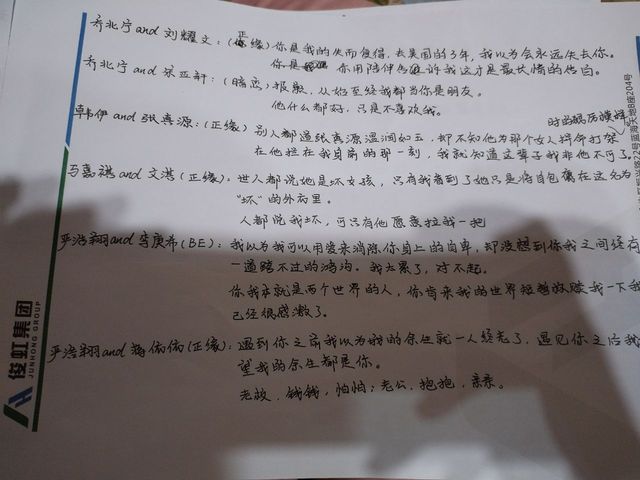 乔北宁and 刘耀文：（正缘）你是我的失而复得，去美国的3年，我以为会永远失去你。
你是 你用陪伴告诉我这才是最长情的告白。
乔北宁and 宋亚轩：（暗恋）抱歉，从始至终我都当你是朋友。
他什么都好，只是不喜欢我。
时的飒厉模样
韩伊and 张真源：（正缘）别人都道张真源温润如玉，却不知他为那个女人拼命打架
在他拦在我身前的那一刻，我就知道这辈子我非他不可了。
马嘉祺and 文淇（正缘）：世人都说她是坏女孩，只有我看到了她只是将自己藏在这名为
“坏”的外衣里。
人都说我坏，可只有他愿意拉我一把
严浩翔and 李庚希（BE）：我以为我可以用爱来消除你身上的自卑，却没想到你我之间终有
一道跨不过的鸿沟。我太累了，对不起。
你我本就是两个世界的人，你肯来我的世界短暂救赎我一下我
已经很感激了。
严浩翔and 倩倩（正缘）：遇到你之前我以为我的余生就一人终老了，遇见你之后我
望我的余生都是你。
老婆，钱钱，怕怕；老公，抱抱，亲亲。
俊虹集团
JUNHONG GROUP
2号蓝海天地B座204号